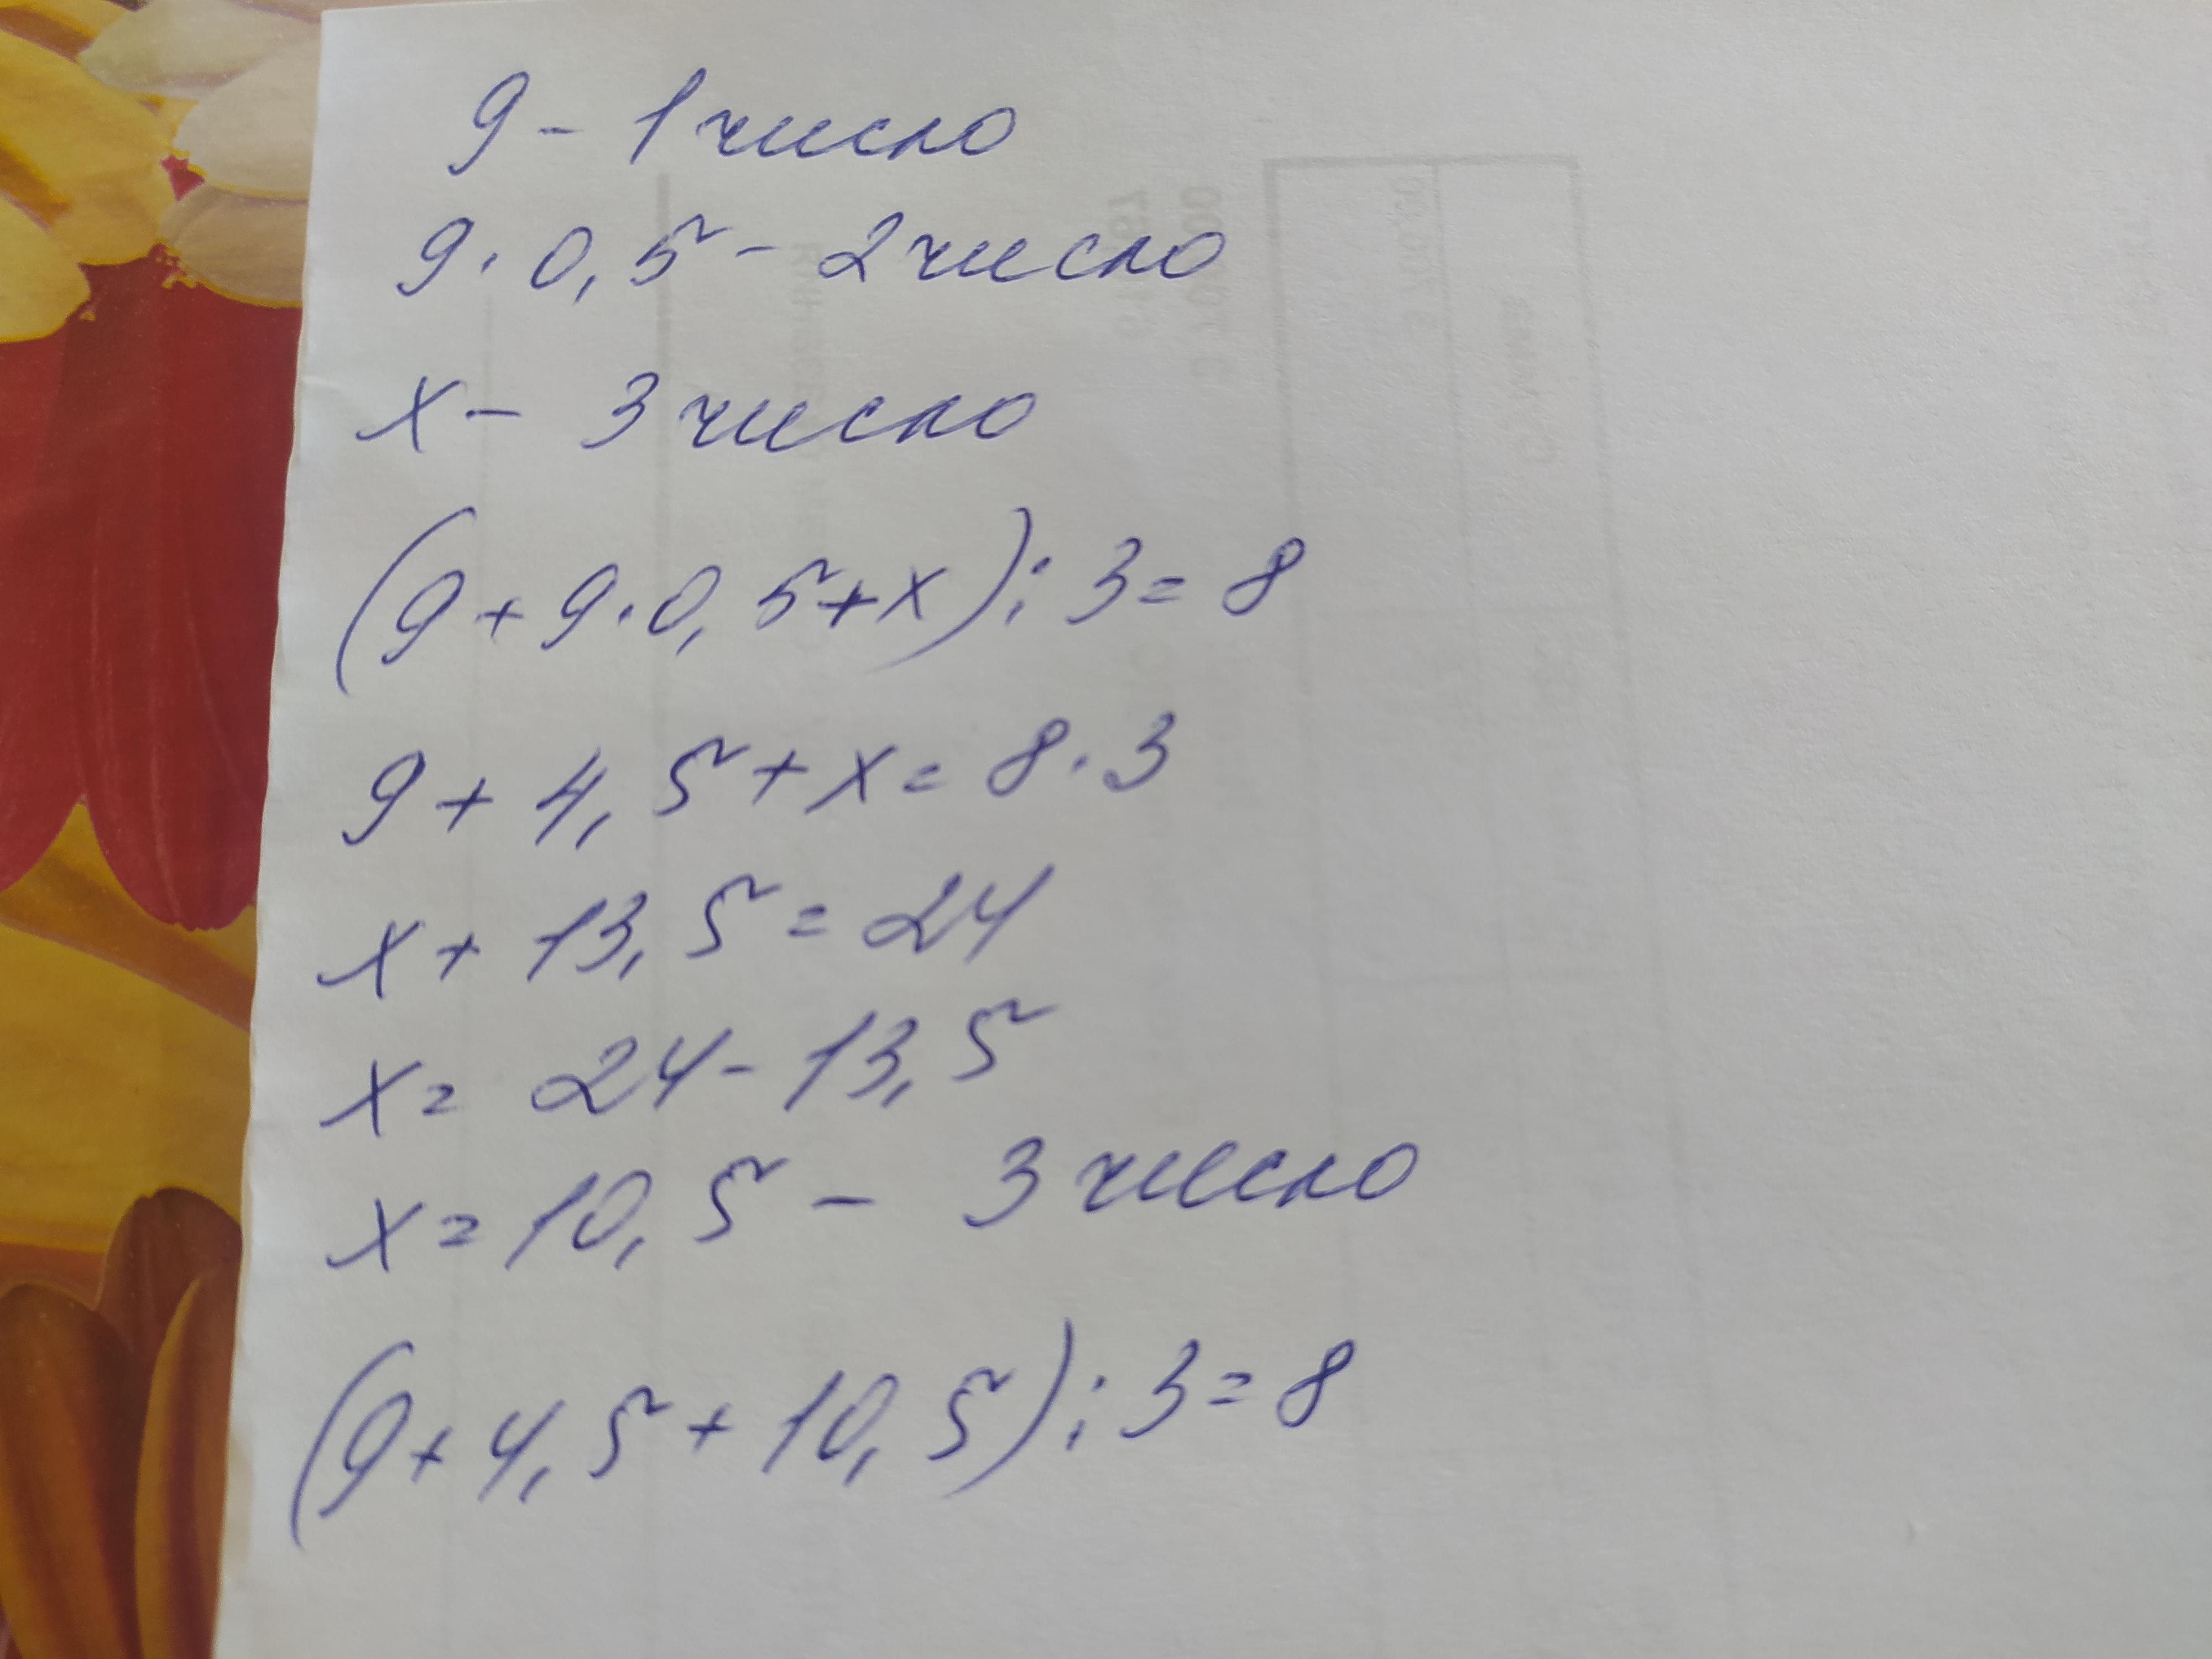 9 - 1 число
9 · 0,5 - 2 число
x - 3 число
(9 + 9 · 0,5 + x) : 3 = 8
9 + 4,5 + x = 8 · 3
x + 13,5 = 24
x = 24 - 13,5
x = 10,5 - 3 число
(9 + 4,5 + 10,5) : 3 = 8